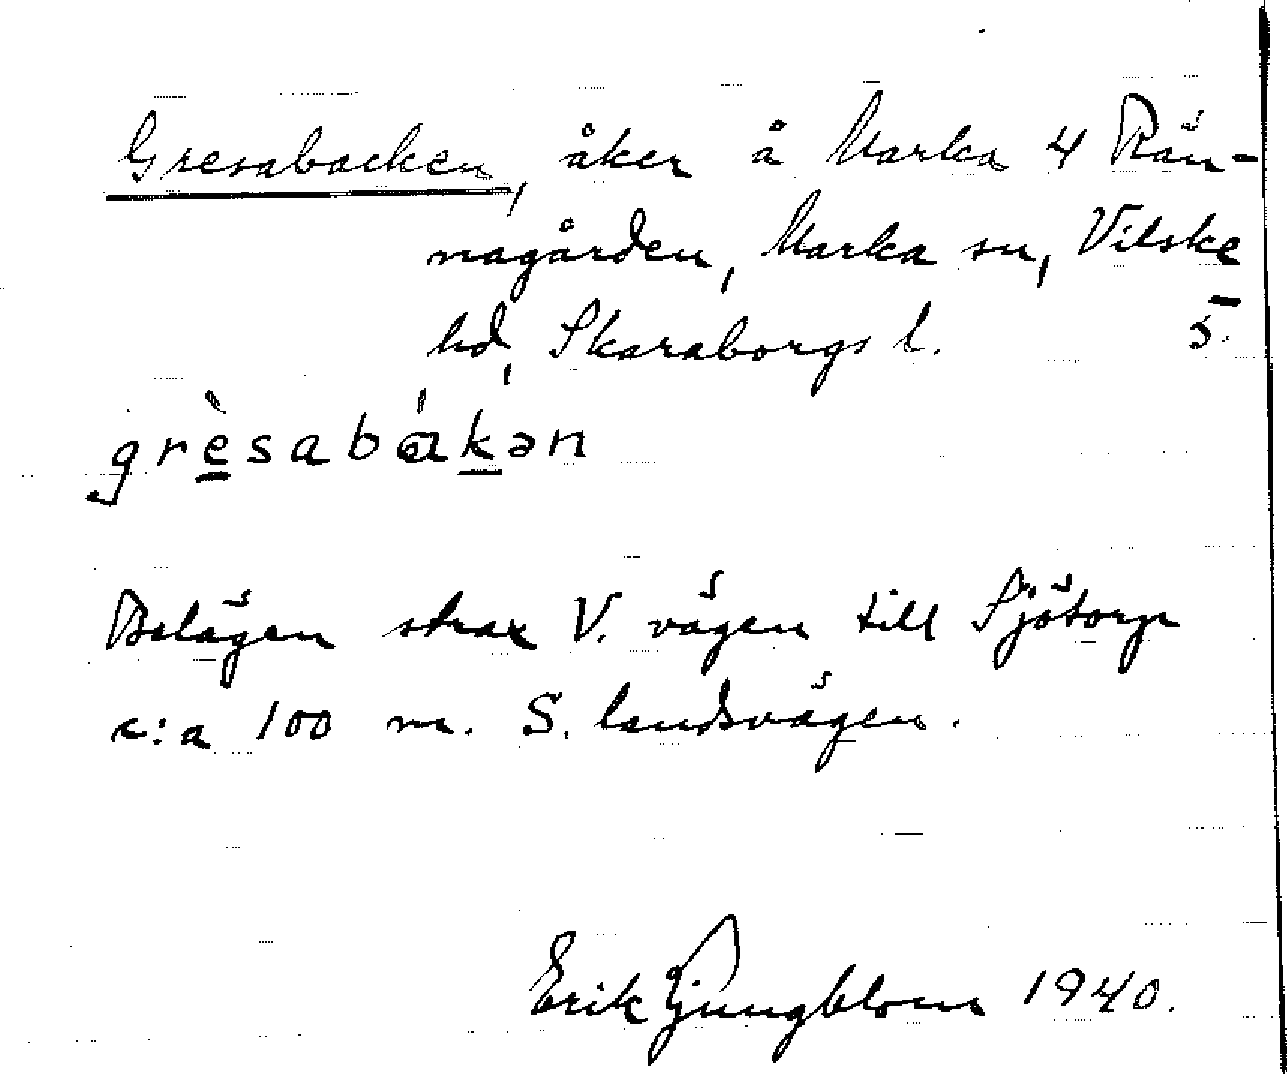 Gresabacken, åker å Marka 4 Rän-
nagården, Marka sn, Vilske
hd, Skaraborgs l. 5.
grèsabákən
Belägen strax V. vägen till Sjötorp
c:a 100 m. S. landsvägen.
Erik Ljungblom 1940.